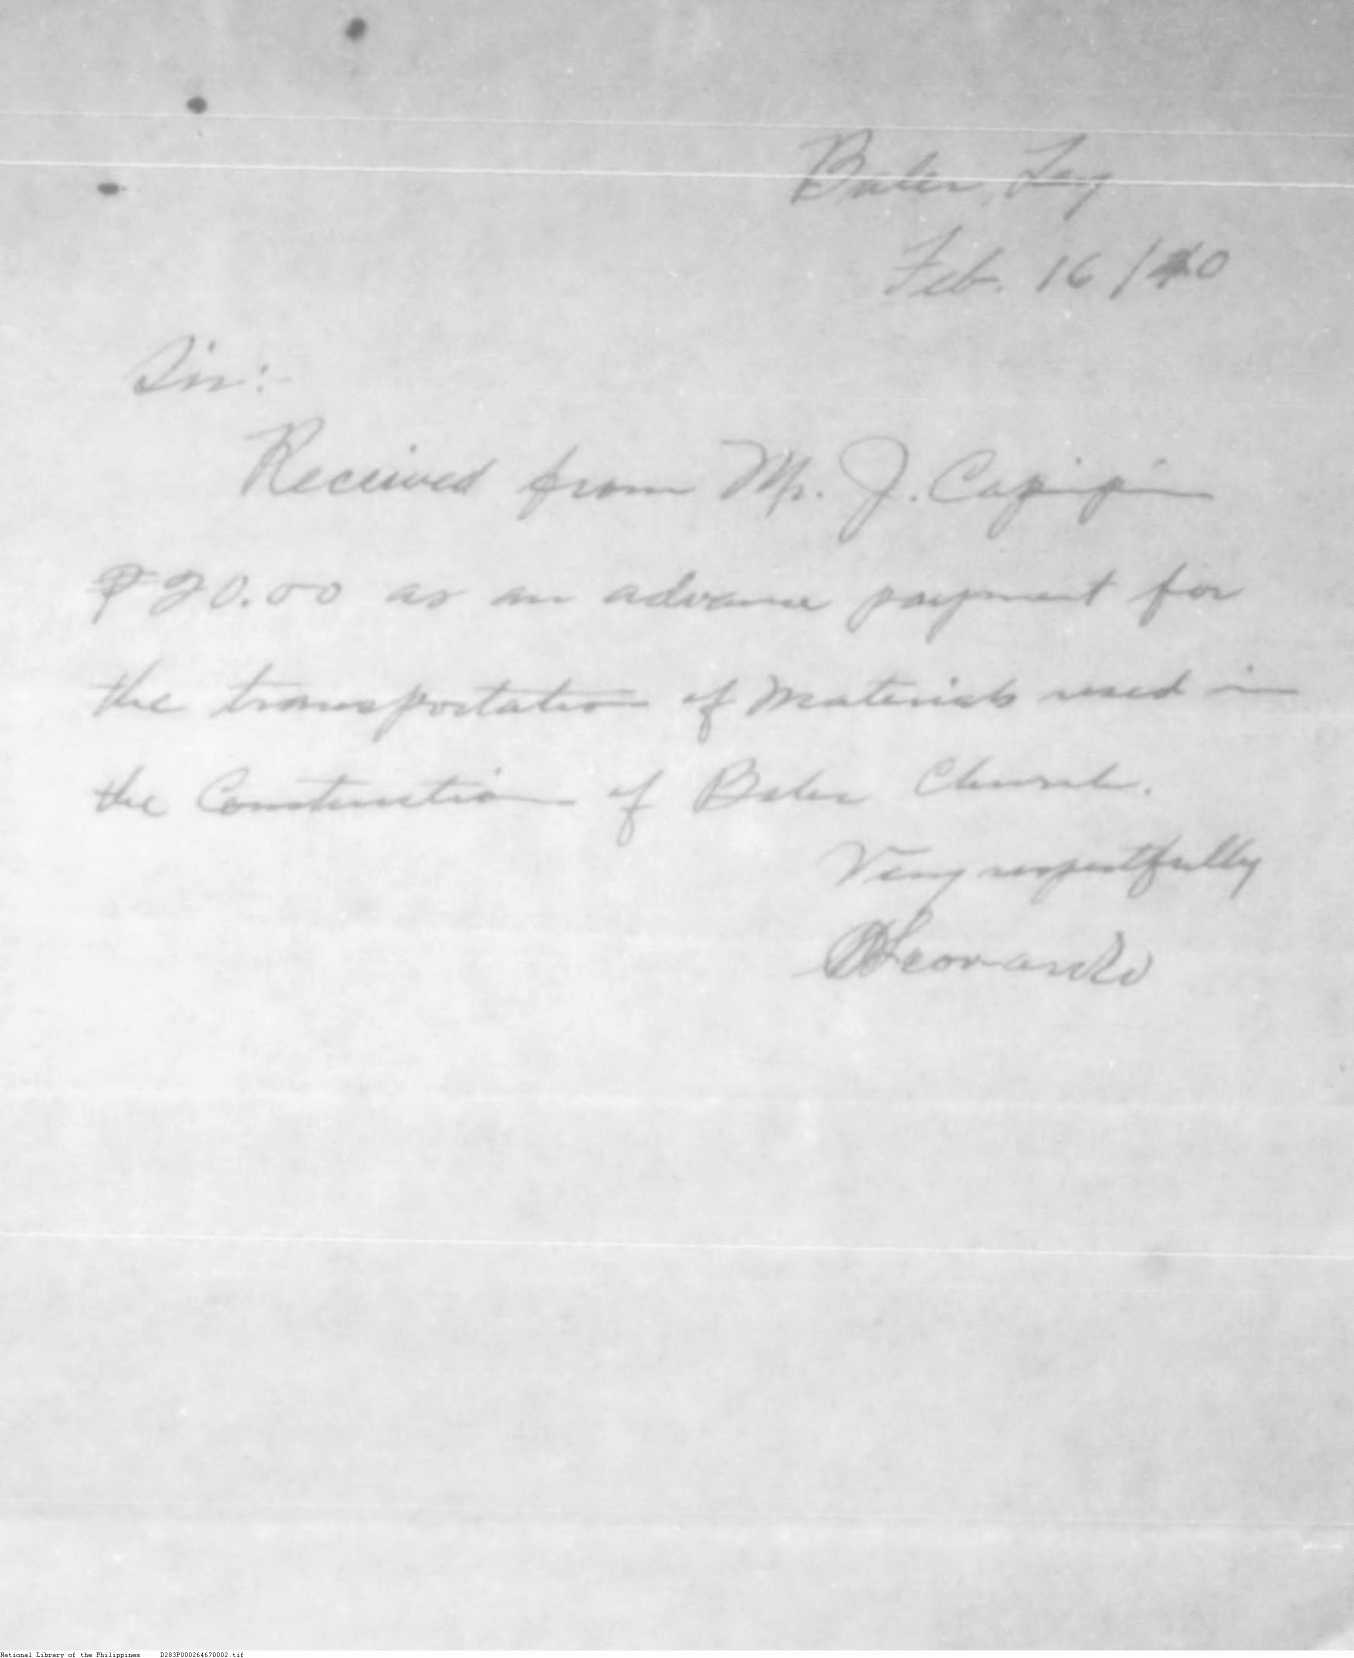 Baler, Tay
Feb. 16/40
Sir:-
Received from Mr. J. Capipin
₱20.00 as an advance payment for
the transportation of Materials used in
the Construction of Baler Church.
Very respectfully
Leonardo
National Library of the Philippines D283P000264670002.tif